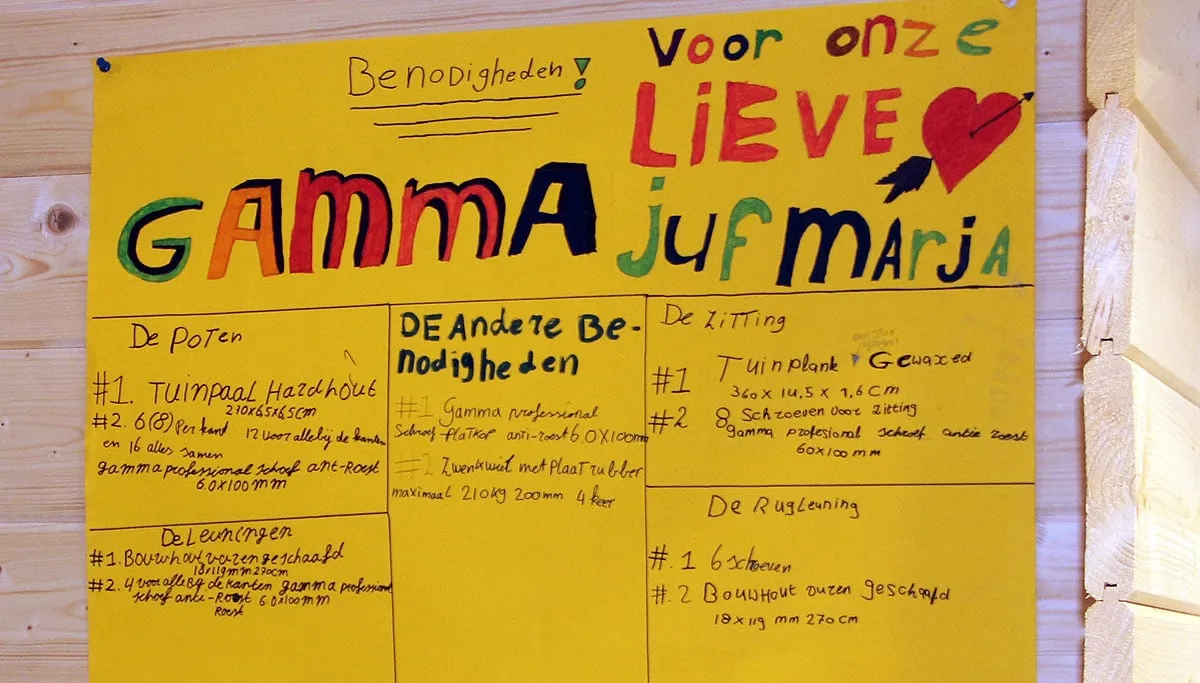 Benodigheden!
Voor onze
LiEVE
GAMMA
juf mArjA
De Poten
#1. Tuinpaal Hardhout
210x65x65cm
#2. 6(8) Per kant 12 voor allebij de kanten
en 16 alles samen
gamma professional schoef ant-Roest
6.0x100mm
De Leuningen
#1. Bouwhout vuren geschaafd
18x119mm 270cm
#2. 4 voor alleBij de kanten gamma professional
schoef anti-Roest 6.0x100mm
Roest
DE Andere Be-
nodigheden
#1 Gamma professional
Schroef PlatKop anti-roest 6.0X100mm
#2 Zwenkwiel met Plaat rubber
maximaal 210kg 200mm 4 keer
De Zitting
#1 Tuinplank Gewaxed
360x 14,5 x 1,6 cm
#2 8 Schroeven voor zitting
gamma profesional schroef antie roest
60x100mm
De Rugleuning
#.1 6 schoeven
#.2 Bouwhout vuren geschaafd
18x119 mm 270cm